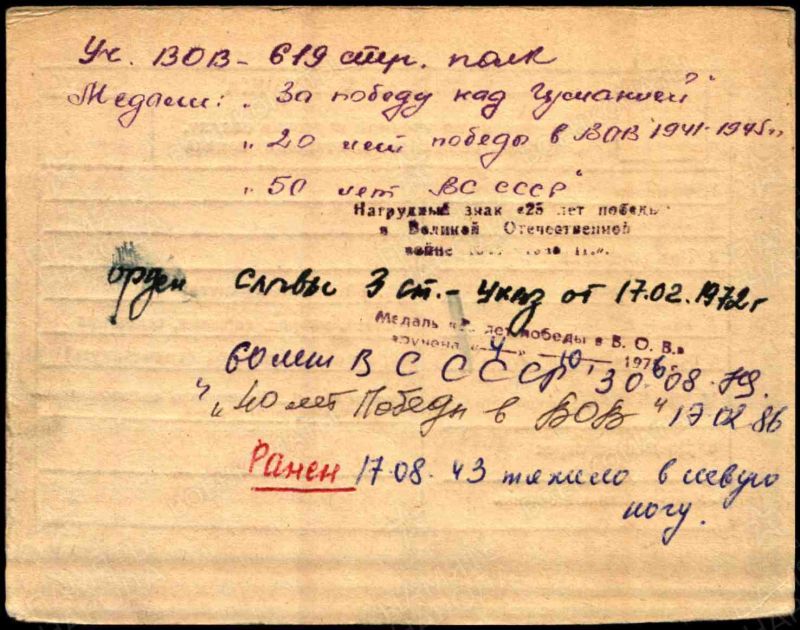 Уч. ВОВ - 619 стр. полк
Медали: „За победу над Германией"
„20 лет победы в ВОВ 1941-1945г„
„50 лет ВС СССР"
Нагрудный знак «25 лет победы
в Великой Отечественной
войне
орден Славы 3 ст. - Указ от 17.02.1972г
Медаль « лет победы в В. О. В.»
вручена «4» 10, 1976
60 лет В С СССР, 30.08.79.
„40 лет Победы в ВОВ" 17.02.86
Ранен 17.08.43 тяжело в левую
ногу.